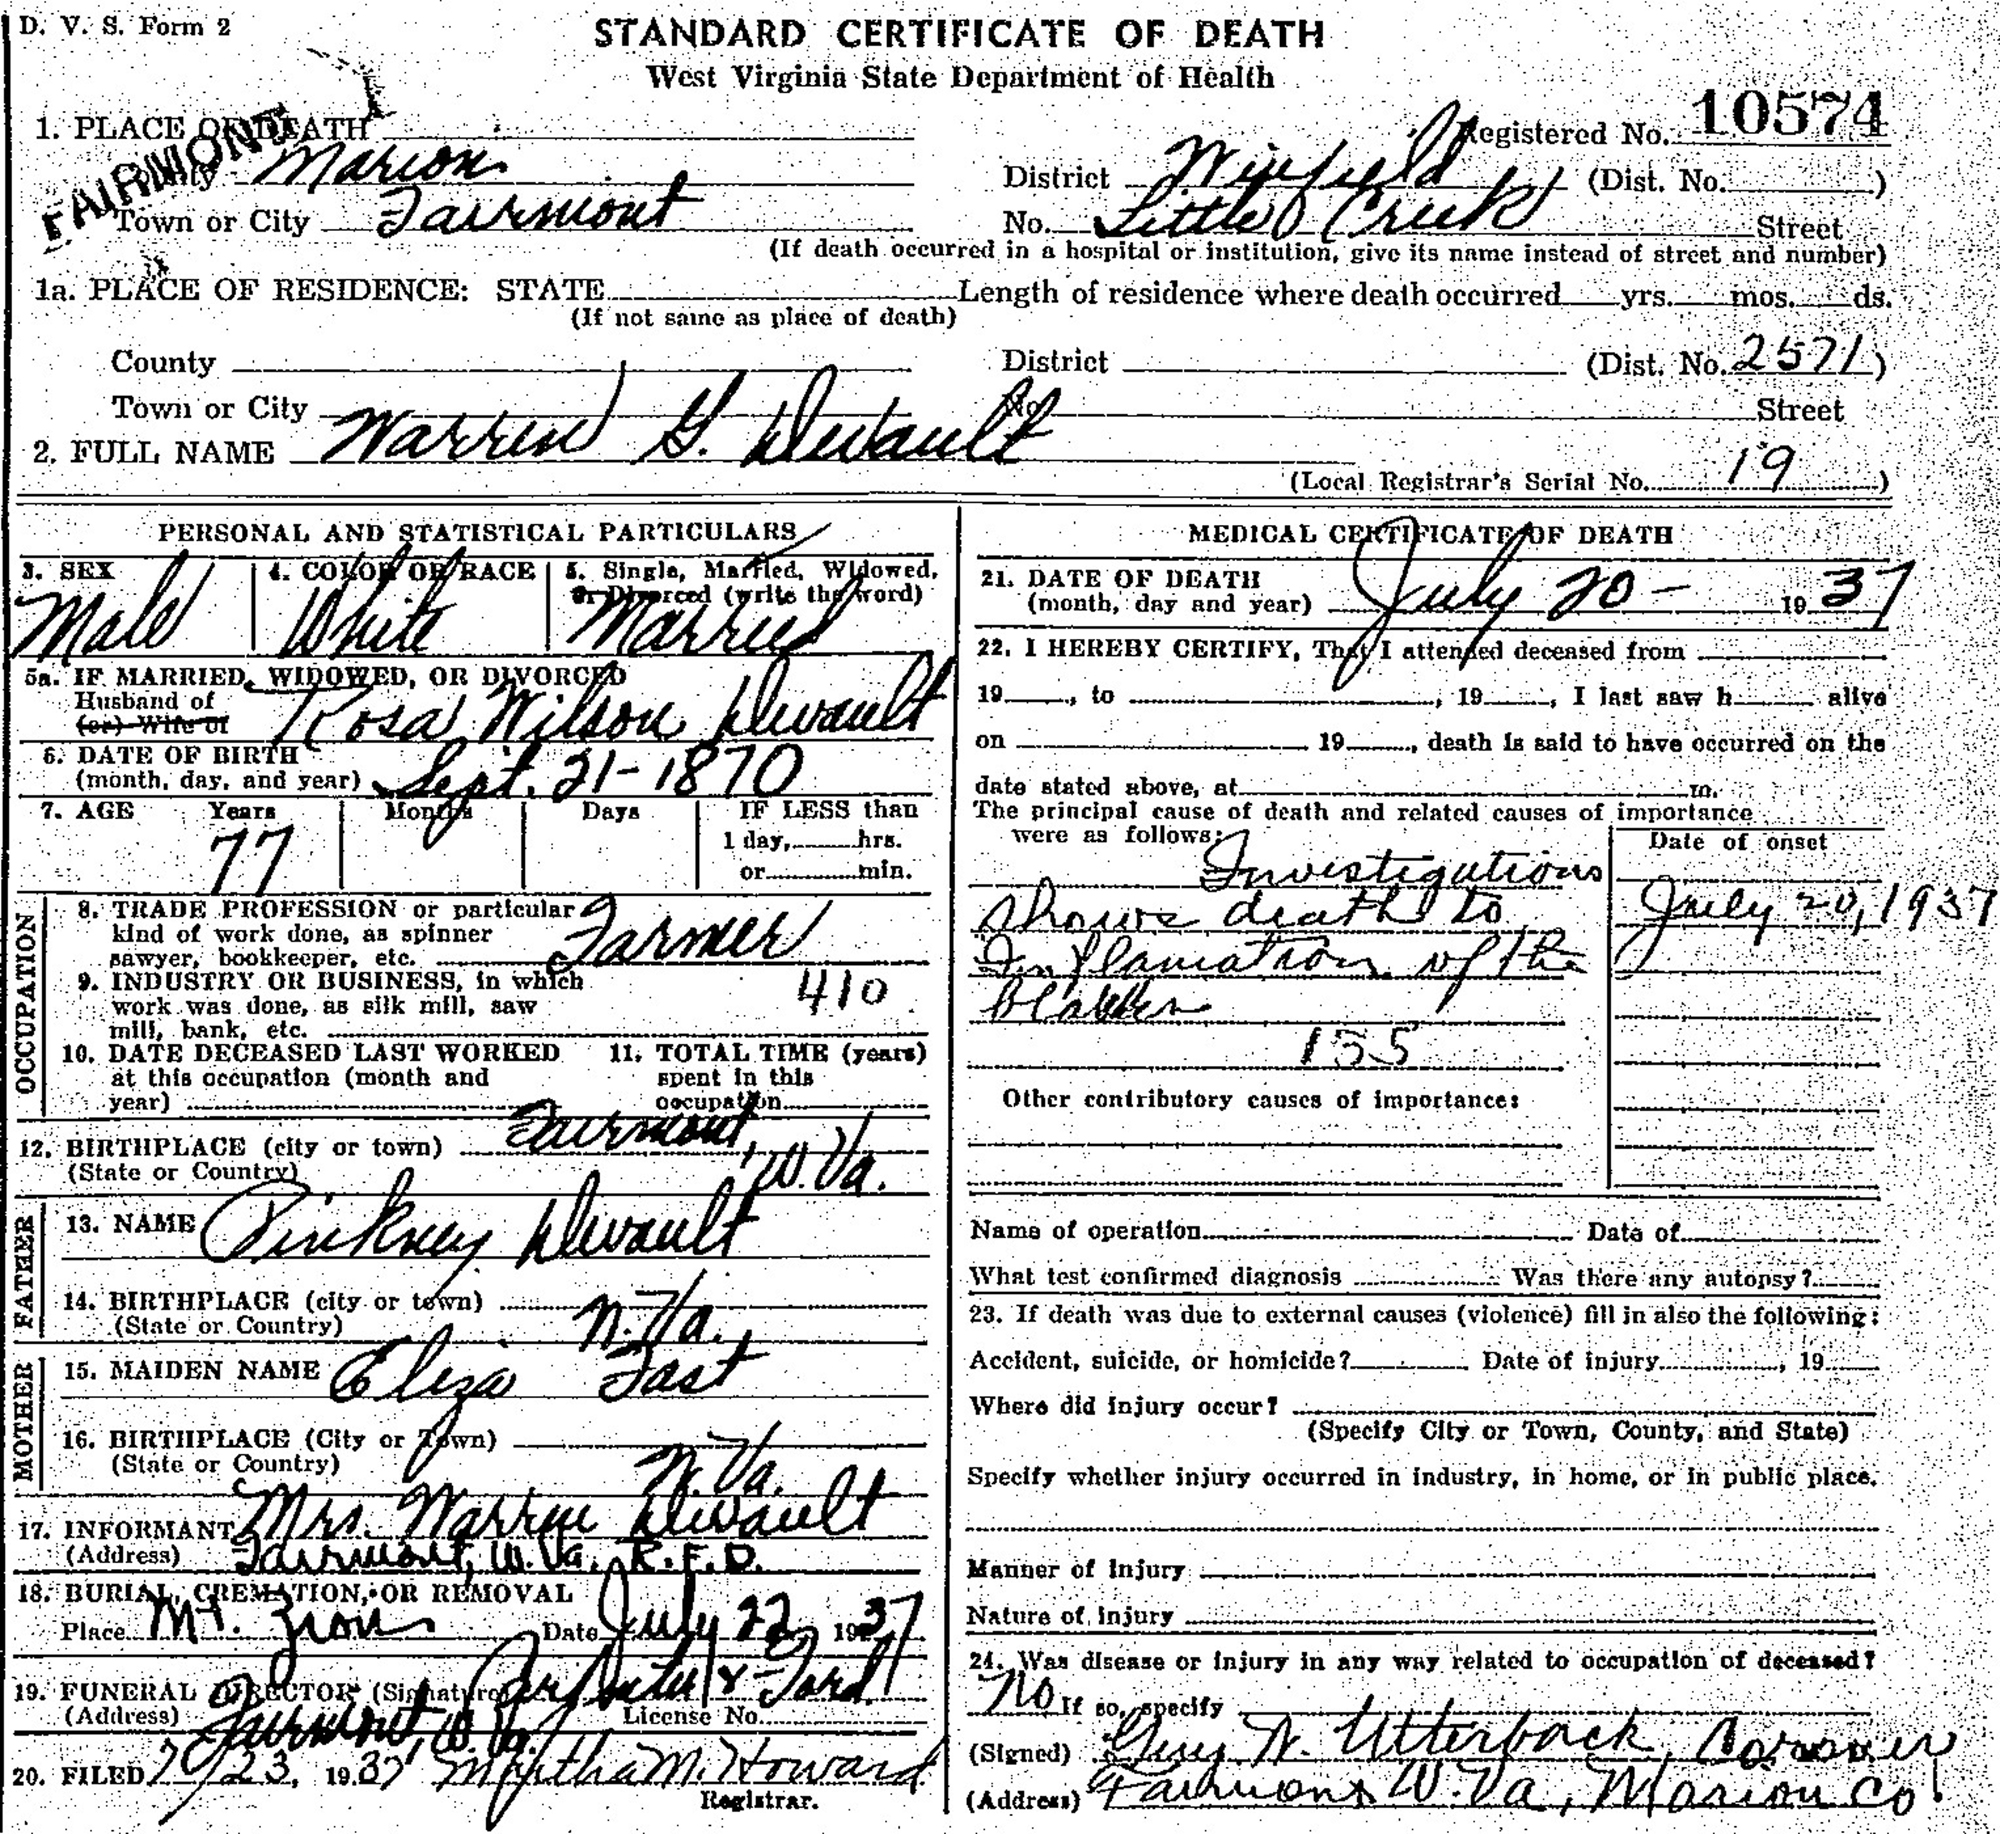 D. V. S. Form 2
STANDARD CERTIFICATE OF DEATH
West Virginia State Department of Health
10574
FAIRMONT
1. PLACE OF DEATH Registered No.
County Marion District Winfield (Dist. No. )
Town or City Fairmont No. Little Creek Street
(If death occurred in a hospital or institution, give its name instead of street and number)
1a. PLACE OF RESIDENCE: STATE Length of residence where death occurred yrs. mos. ds.
(If not same as place of death)
County District (Dist. No. 2571)
Town or City No. Street
2. FULL NAME Warren G. Devault
(Local Registrar's Serial No. 19)
PERSONAL AND STATISTICAL PARTICULARS
3. SEX 4. COLOR OR RACE 5. Single, Married, Widowed,
or Divorced (write the word)
Male White Married
5a. IF MARRIED, WIDOWED, OR DIVORCED
Husband of
(or) Wife of Rosa Wilson Devault
6. DATE OF BIRTH
(month, day, and year) Sept. 21-1870
7. AGE Years Months Days IF LESS than
1 day, hrs.
77 or min.
OCCUPATION
8. TRADE PROFESSION or particular
kind of work done, as spinner
sawyer, bookkeeper, etc. Farmer
9. INDUSTRY OR BUSINESS, in which
work was done, as silk mill, saw 410
mill, bank, etc.
10. DATE DECEASED LAST WORKED 11. TOTAL TIME (years)
at this occupation (month and spent in this
year) occupation
12. BIRTHPLACE (city or town) Fairmont,
(State or Country) W. Va.
FATHER
13. NAME Pinkney Devault
14. BIRTHPLACE (city or town)
(State or Country) W. Va.
MOTHER
15. MAIDEN NAME Eliza Fast
16. BIRTHPLACE (City or Town)
(State or Country) W. Va.
17. INFORMANT Mrs. Warren Devault
(Address) Fairmont, W. Va. R.F.D.
18. BURIAL, CREMATION, OR REMOVAL
Place Mt. Zion Date July 22 1937
19. FUNERAL DIRECTOR (Signature) & Ford
(Address) Fairmont, W. Va. License No.
20. FILED 7/23, 1937 Myrtha M. Howard
Registrar.
MEDICAL CERTIFICATE OF DEATH
21. DATE OF DEATH
(month, day and year) July 20- 1937
22. I HEREBY CERTIFY, That I attended deceased from
19 , to , 19 , I last saw h alive
on 19 , death is said to have occurred on the
date stated above, at m.
The principal cause of death and related causes of importance
were as follows: Date of onset
Investigations
shows death to July 20, 1937
Inflamation of the
Bladder
135
Other contributory causes of importance:
Name of operation Date of
What test confirmed diagnosis Was there any autopsy?
23. If death was due to external causes (violence) fill in also the following:
Accident, suicide, or homicide? Date of injury , 19
Where did injury occur?
(Specify City or Town, County, and State)
Specify whether injury occurred in industry, in home, or in public place.
Manner of injury
Nature of injury
24. Was disease or injury in any way related to occupation of deceased?
No If so, specify
(Signed) Utterback, Coroner
(Address) Fairmont W. Va, Marion Co